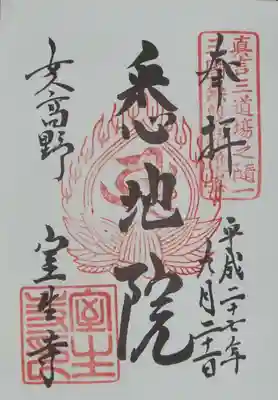 奉拝
真言三道場之随一
平成二十七年
九月二十二日
悉地院
女人高野
室生寺